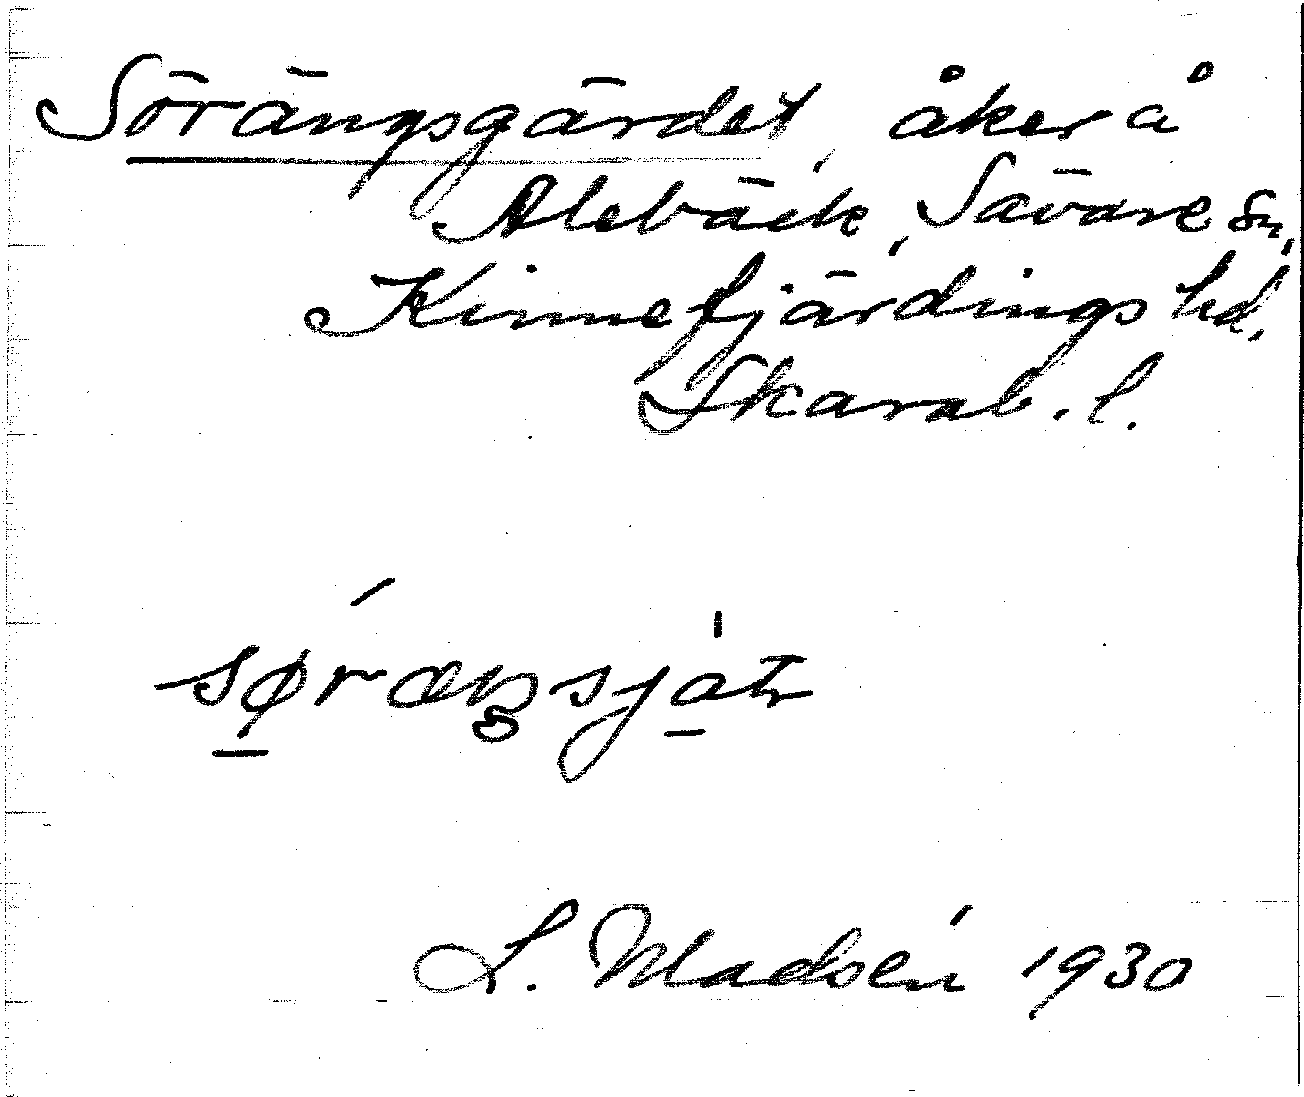 Sörängsgärdet, åker å
Alebäck, Sävare sn,
Kinnefjärdings hd,
Skarab. l.
søræŋsjat
L. Madsén 1930